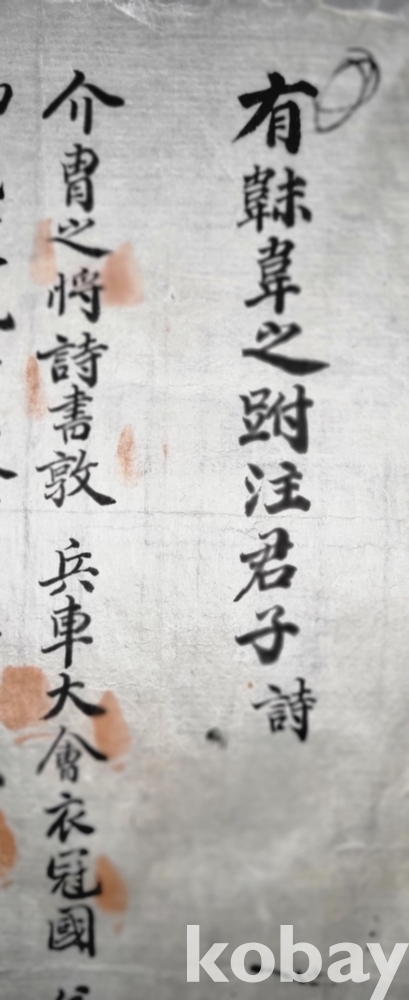 有韎韋之跗注君子詩
介冑之將詩書敦
兵車大會衣冠國
kobay